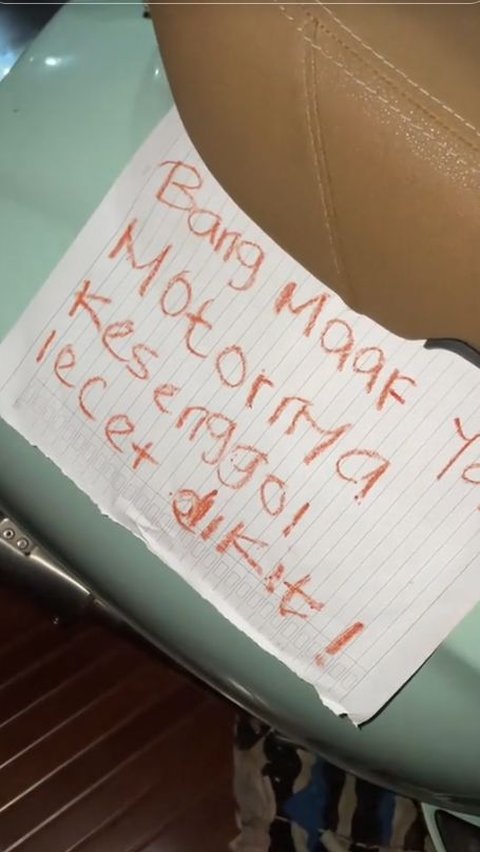 Bang Maaf Ya
Motornya
Kesenggol
lecet dikit!